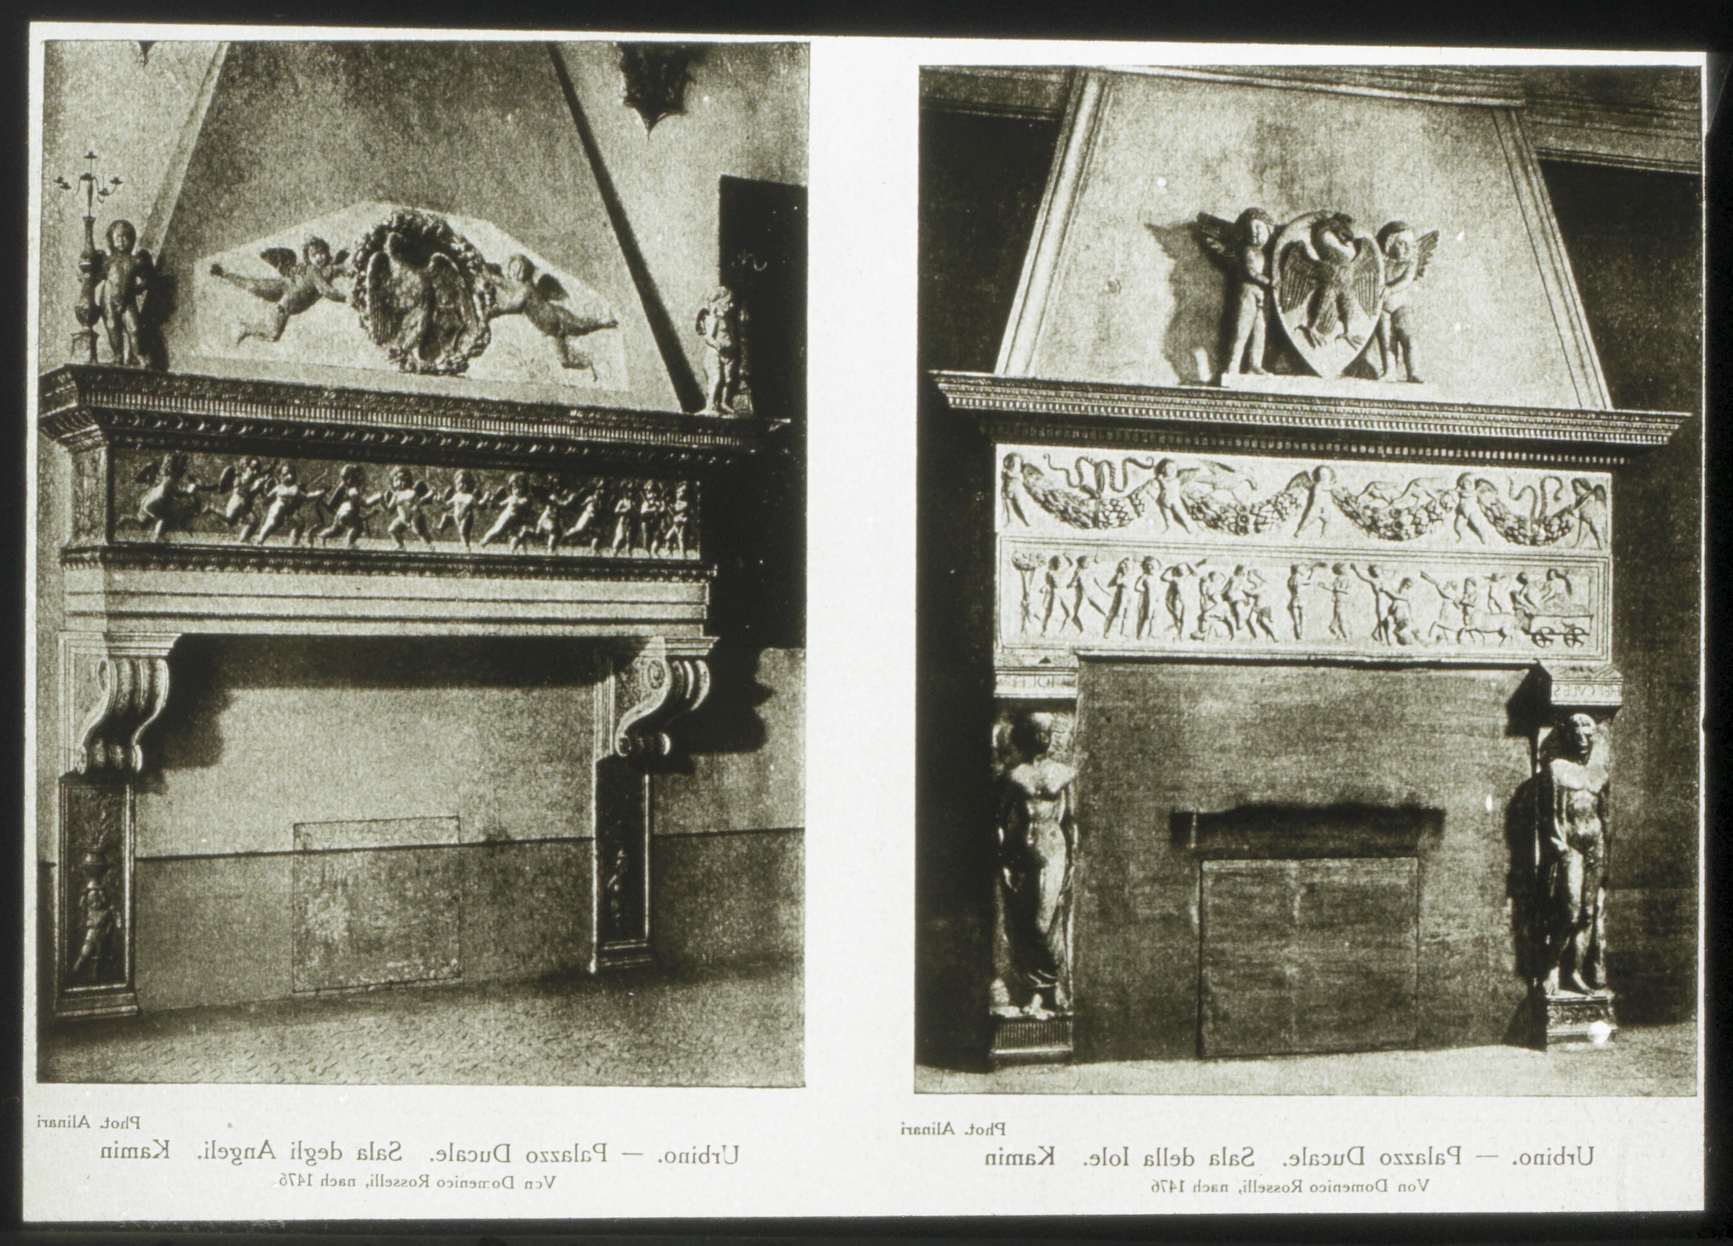 Phot. Alinari
Urbino. — Palazzo Ducale. Sala degli Angeli. Kamin
Von Domenico Rosselli, nach 1476
Phot. Alinari
Urbino. — Palazzo Ducale. Sala della Iole. Kamin
Von Domenico Rosselli, nach 1476